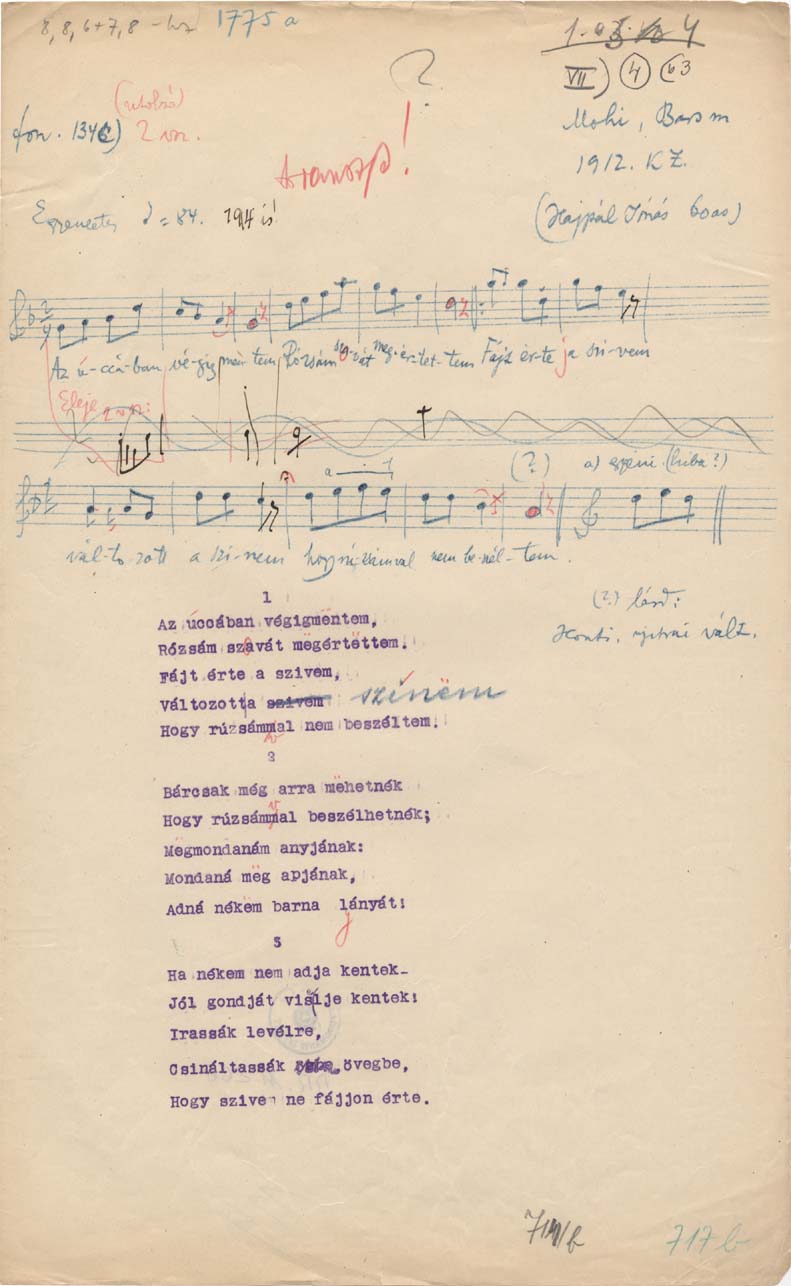 8, 8, 6+7, 8 - 1775 a
1. 4
VII) 4 63
(utolsó)
fon. 1346) 2 von.
Mohi, Bars m
1912. K Z.
(Hajpál Jónás 60as)
Egyenletes = 84. 1914 is!
Az ú-ccá-ban vé-gig mën-tem Rózsám sza-vát meg-ér-tet-tem Fájt ér-te ja szí-vem
Eleje 2 von:
(?) a) egyéni (hiba?)
vál-to-zott a szí-nem hogy rú-zsámval nem be-szél-tem.
(?) lásd:
Honti, nyitrai vált.
1
Az úccában végigmëntem,
Rózsám szavát mëgértëttem.
Fájt érte a szivem,
Változott a szivem színëm
Hogy rúzsámmal nem beszéltem.
2
Bárcsak még arra mëhetnék
Hogy rúzsámmal beszélhetnék;
Mëgmondanám anyjának:
Mondaná mëg apjának,
Adná nékëm barna lányát!
3
Ha nékem nem adja kentek-
Jól gondját visije kentek!
Irassák levélre,
Csináltassák övegbe,
Hogy szivem ne fájjon érte.
717 b